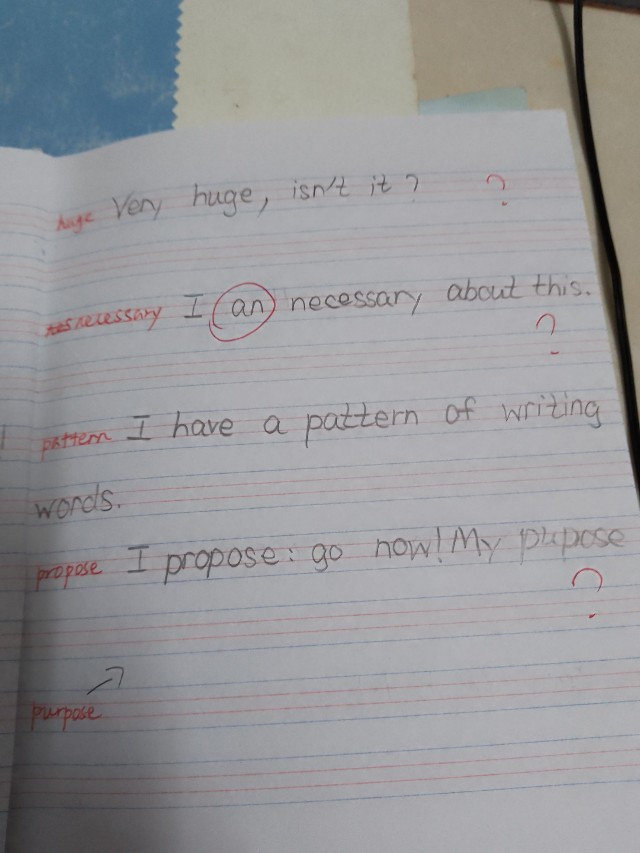 huge Very huge, isn't it? ?
necessary I an necessary about this.
?
pattern I have a pattern of writing
words.
propose I propose: go now! My pupose
?
purpose